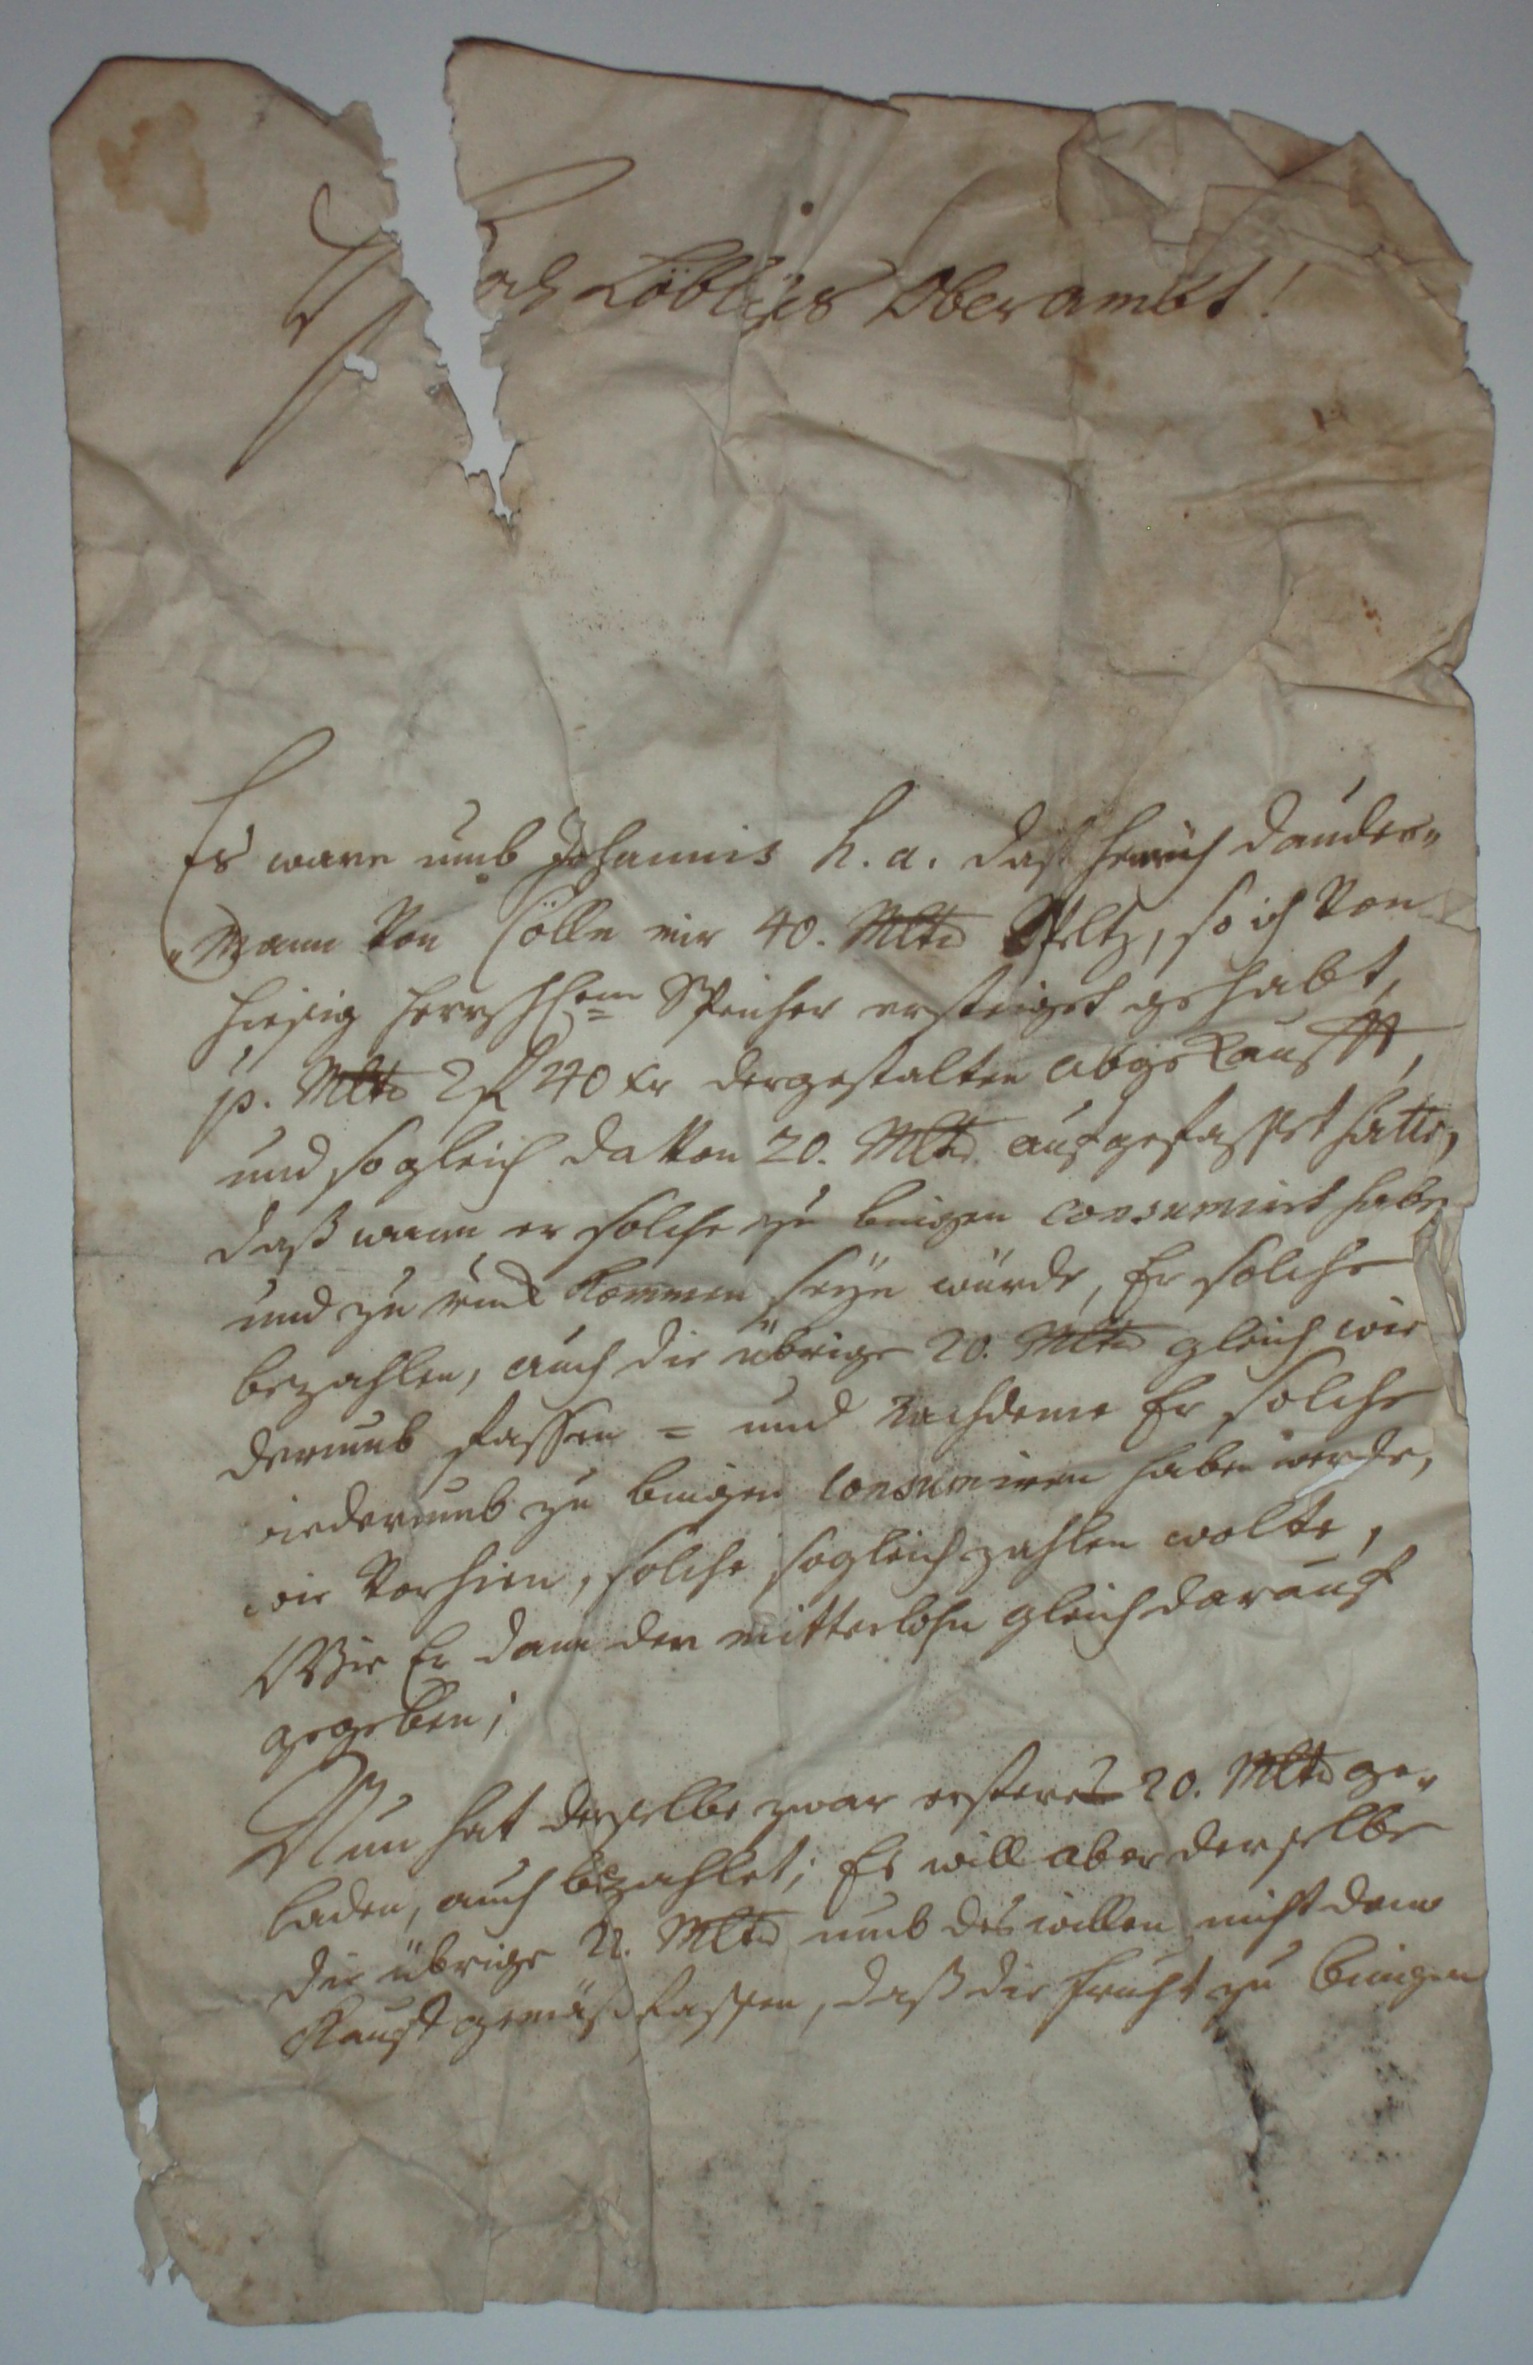 Hoch Löbliches Oberambt!
Es ware umb Johannis h. a. daß Henrich Dauder„
„mann von Cölln mir 40. Mltr Speltz, so ich von
hiesig herrschl.em Speicher ersteiget gehabt,
p. Mltr 2 f 40 xr dergestalten abgekaufft,
und sogleich davon 20. Mltr aufgefasset hatte,
daß wann er solche zu Bingen consumirt habe
und zurück kommen seyn würde, Er solche
bezahlen, auch die übrige 20. Mltr gleich wie
derumb fassen = und nachdeme Er solche
wiederumb zu Bingen consumiren haben werde,
wie vorhien, solche sogleich zahlen wolte,
Wie Er dann den mitterlohn gleich darauf
gegeben;
Nun hat derselbe zwar erstere 20. Mltr ge„
laden, auch bezahlet; Es will aber derselbe
die übrige Mltr umb deswillen nicht dem
Kauf gemäß fassen, daß die Frucht zu Bingen